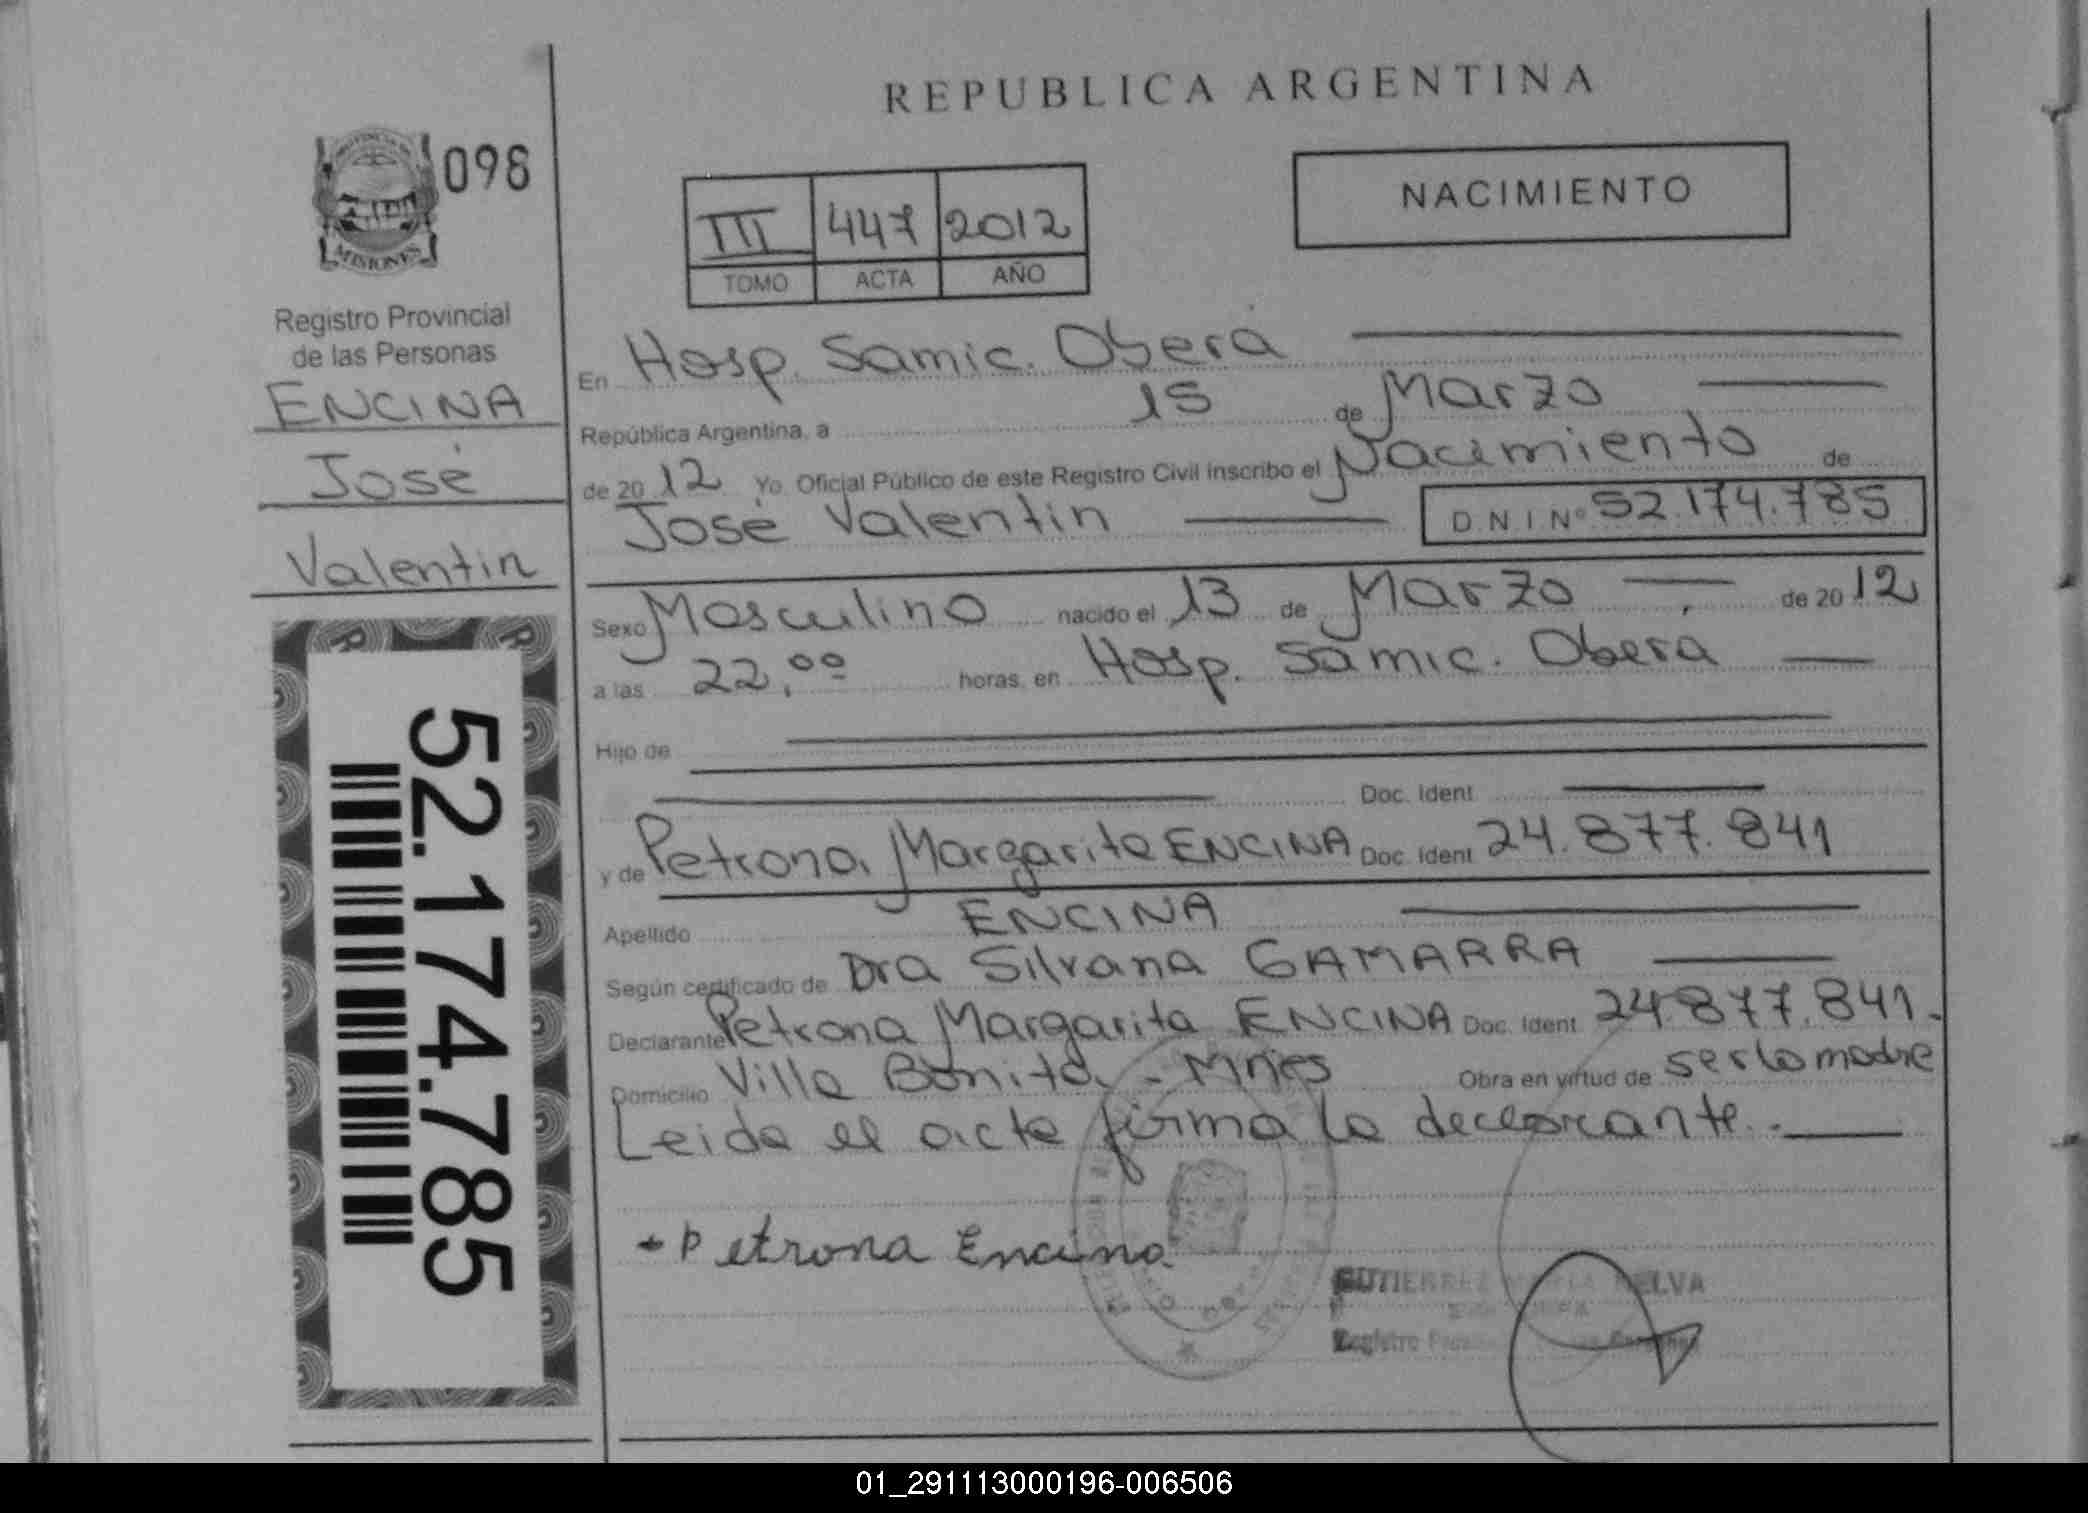 REPUBLICA ARGENTINA
098
MISIONES
Registro Provincial
de las Personas
ENCINA
José
Valentin
52.174.785
III 447 2012
TOMO ACTA AÑO
NACIMIENTO
En Hosp. Samic. Oberá
República Argentina, a 15 de Marzo
de 2012 Yo Oficial Público de este Registro Civil inscribo el Nacimiento de
José Valentin D.N.I Nº 52.174.785
Sexo Masculino nacido el 13 de Marzo de 2012
a las 22,00 horas, en Hosp. Samic. Oberá
Hijo de
Doc. Ident
y de Petrona Margarita ENCINA Doc. Ident 24.877.841
Apellido ENCINA
Según certificado de Dra Silvana GAMARRA
Declarante Petrona Margarita ENCINA Doc. Ident 24.877.841.
Domicilio Villa Bonita - Mnes Obra en virtud de ser la madre
Leida el acta firma la declarante.
Petrona Encina
GUTIERREZ MARIA NELVA
Registro
01_291113000196-006506